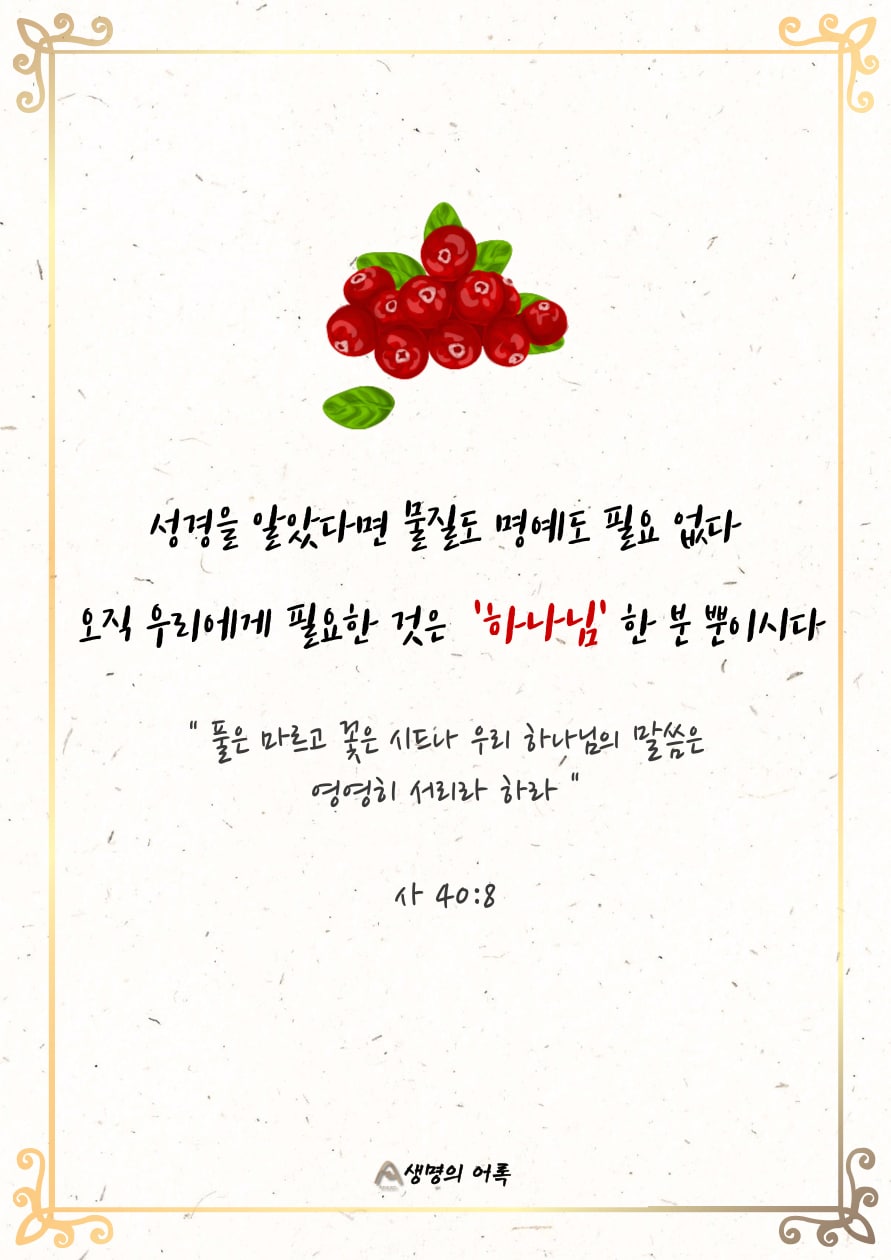 성경을 알았다면 물질도 명예도 필요 없다
오직 우리에게 필요한 것은 '하나님' 한 분 뿐이시다
" 풀은 마르고 꽃은 시드나 우리 하나님의 말씀은
영영히 서리라 하라 "
사 40:8
생명의 어록